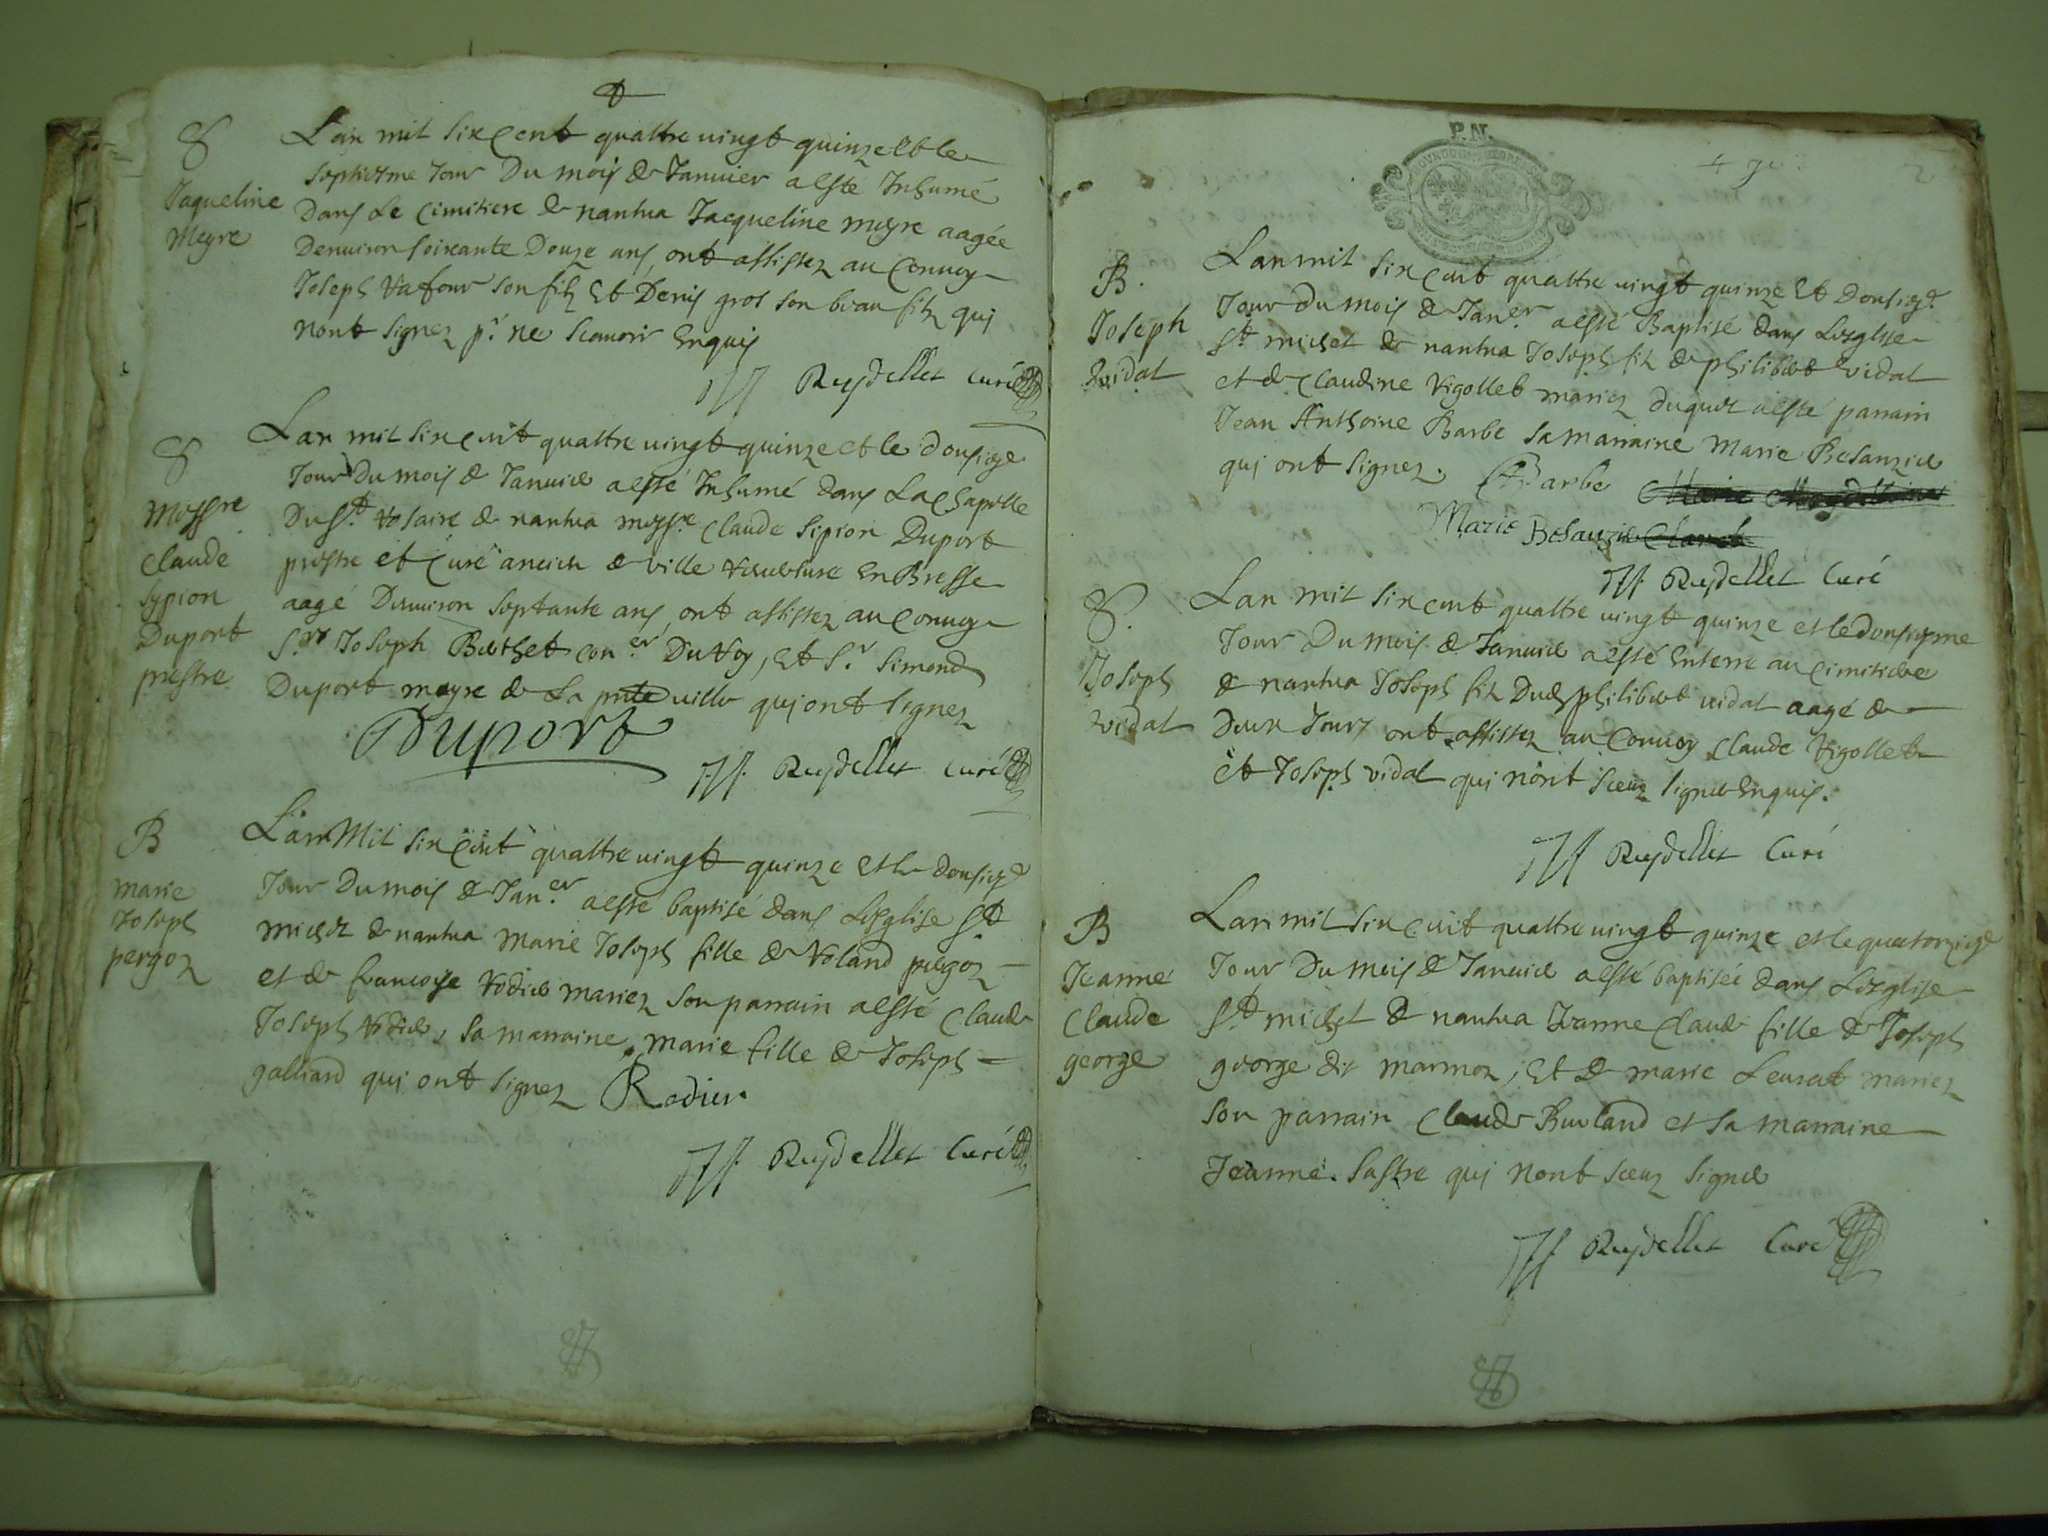 S
Jaqueline
Meyre
Lan mil six Cent quattre uingt quinze et le
septiesme Jour Du mois de Januier a esté Inhumé
Dans Le Cimitiere de nantua Jacqueline meyre aagée
Denuiron soixante Douze ans, ont assistez au Conuoy
Joseph Vafour son filz Et Denis gros son beau filz qui
nont signez pr. ne scauoir Enquis
Ruydellet Curé
S
Messre
Claude
Sypion
Duport
prestre
Lan mil six Cent quattre uingt quinze et le dousiesme
Jour Du mois de Januier a esté Inhumé dans La Chapelle
Du St. Rosaire de nantua messre. Claude Sipion Duport
prestre et Curé ancien de ville en Bresse
aagé Denuiron septante ans, ont assistez au Conuoy
Sr. Joseph Berthet coner. Du Roy, et Sr. Simond
Duport mayre de La pnte ville qui ont signez
Duport
Ruydellet Curé
B
marie
Joseph
pergoz
Lan Mil six Cent quattre uingt quinze et le dousie
Jour Du mois de Janer. a esté baptisé dans Lesglise St.
michel de nantua Marie Joseph fille de Roland pergoz
et de francoise Rodier mariez son parrain a esté Claude
Joseph Rodier, sa marraine marie fille de Joseph
galliard qui ont signez Rodier
Ruydellet Curé
P.N.
2
B.
Joseph
vidal
Lan mil six cent quattre uingt quinze Et dousie
Jour du mois de Janer. a esté Baptisé dans Lesglise
St. michel de nantua Joseph filz de philibert vidal
et de Claudine Vigollet mariez duquel a esté parrain
Jean Anthoine Barbe sa marraine Marie Besanzier
qui ont signez. Barbe
Marie Besanzier
Ruydellet Curé
S.
Joseph
vidal
Lan mil six cent quattre uingt quinze et le dousiesme
Jour Du mois de Januier a esté Enterré au Cimitiere
de nantua Joseph filz Dud. philibert vidal aagé de
Deux Jours ont assistez au Conuoy Claude Vigollet
et Joseph vidal qui nont sceuz signer Enquis.
Ruydellet Curé
B
Jeanne
Claude
george
Lan mil six cent quattre uingt quinze et le quatorzie
Jour Du mois de Januier a esté baptisée dans Lesglise
St. michel de nantua Jeanne Claude fille de Joseph
george dit marmoz, Et de marie Leurat mariez
son parrain Claude Burland et sa marraine
Jeanne Sastre qui nont sceuz signer
Ruydellet Curé